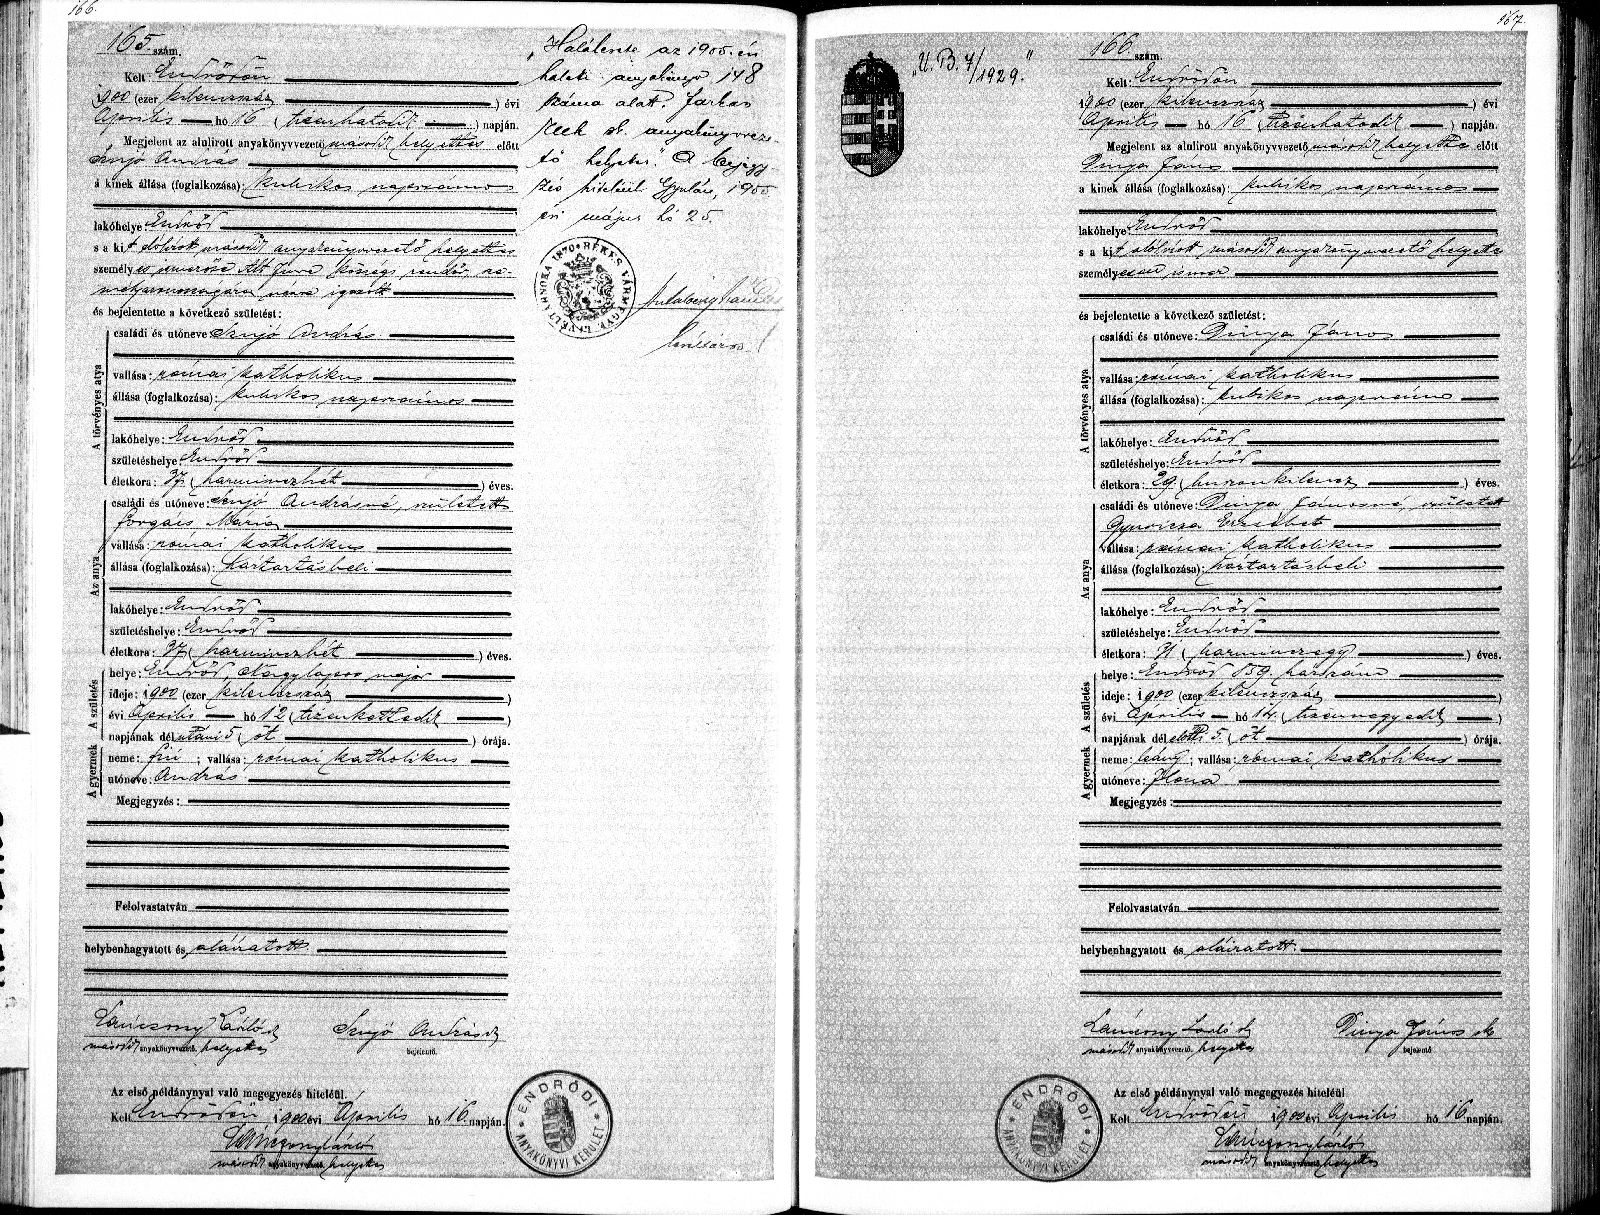 166.
165 szám.
Kelt: Endrődön
1900 (ezer kilenczszáz) évi
Április hó 16 (tizenhatodik) napján.
Megjelent az alulirott anyakönyvvezető második helyettes előtt
András
a kinek állása (foglalkozása): kubikos napszámos
lakóhelye: Endrőd
s a kit alólirott második anyakönyvvezető helyettes
személyes ismerőse községi rendőr, sze-
mélyazonosságára nézve igazolt
és bejelentette a következő születést:
A törvényes atya
családi és utóneve: András
vallása: római katholikus
állása (foglalkozása): kubikos napszámos
lakóhelye: Endrőd
születéshelye: Endrőd
életkora: 37 (harminczhét) éves.
Az anya
családi és utóneve: Andrásné, született
Forgács Mária
vallása: római katholikus
állása (foglalkozása): háztartásbeli
lakóhelye: Endrőd
születéshelye: Endrőd
életkora: 37 (harminczhét) éves.
A születés
helye: Endrőd, Nagylapos major
ideje: 1900 (ezer kilenczszáz)
évi Április hó 12 (tizenkettedik)
napjának délutáni 5 (öt) órája.
A gyermek
neme: fiú; vallása: római katholikus
utóneve: András
Megjegyzés:
Felolvastatván
helybenhagyatott és aláiratott
András
második anyakönyvvezető helyettes
bejelentő.
Az első példánynyal való megegyezés hiteléül.
Kelt Endrődön 1900 évi Április hó 16 napján.
második anyakönyvvezető helyettes
ENDRŐDI ANYAKÖNYVI KERÜLET
„Halálesete az 1900. évi
halotti anyakönyv 148
száma alatt. Farkas
anyakönyvveze-
tő helyettes". A bejegy-
zés hiteléül Gyulán, 1900
évi május hó 25.
BÉKÉS VÁRMEGYE LEVÉLTÁRNOKA 1870
levéltáros
167.
„U. B. 7/1929."
166 szám.
Kelt: Endrődön
1900 (ezer kilenczszáz) évi
Április hó 16 (tizenhatodik) napján.
Megjelent az alulirott anyakönyvvezető második helyettes előtt
Dinya János
a kinek állása (foglalkozása): kubikos napszámos
lakóhelye: Endrőd
s a kit alólirott második anyakönyvvezető helyettes
személyesen ismer
és bejelentette a következő születést:
A törvényes atya
családi és utóneve: Dinya János
vallása: római katholikus
állása (foglalkozása): kubikos napszámos
lakóhelye: Endrőd
születéshelye: Endrőd
életkora: 29 (huszonkilencz) éves.
Az anya
családi és utóneve: Dinya Jánosné, született
Gyuricza Erzsébet
vallása: római katholikus
állása (foglalkozása): háztartásbeli
lakóhelye: Endrőd
születéshelye: Endrőd
életkora: 31 (harminczegy) éves.
A születés
helye: Endrőd 859. házszám
ideje: 1900 (ezer kilenczszáz)
évi Április hó 14. (tizennegyedik)
napjának délelőtti 5. (öt) órája.
A gyermek
neme: leány; vallása: római katholikus
utóneve: Ilona
Megjegyzés:
Felolvastatván
helybenhagyatott és aláiratott.
Dinya János
második anyakönyvvezető helyettes
bejelentő
Az első példánynyal való megegyezés hiteléül
Kelt Endrődön 1900 évi Április hó 16 napján.
második anyakönyvvezető helyettes
ENDRŐDI ANYAKÖNYVI KERÜLET